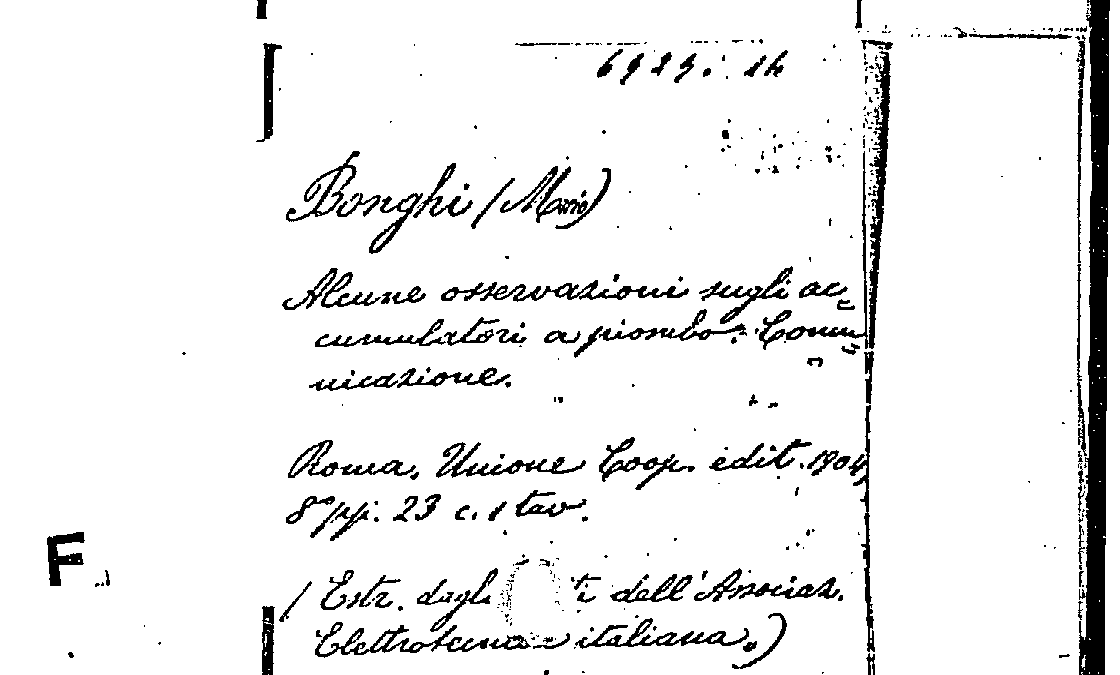 6929. 14
Bonghi (Mario)
Alcune osservazioni sugli ac=
cumulatori a piombo. Comu=
nicazione.
Roma, Unione Coop. edit. 1904,
8° pp. 23 c. 1 tav.
F.
(Estr. dagli dell'Associaz.
italiana.)